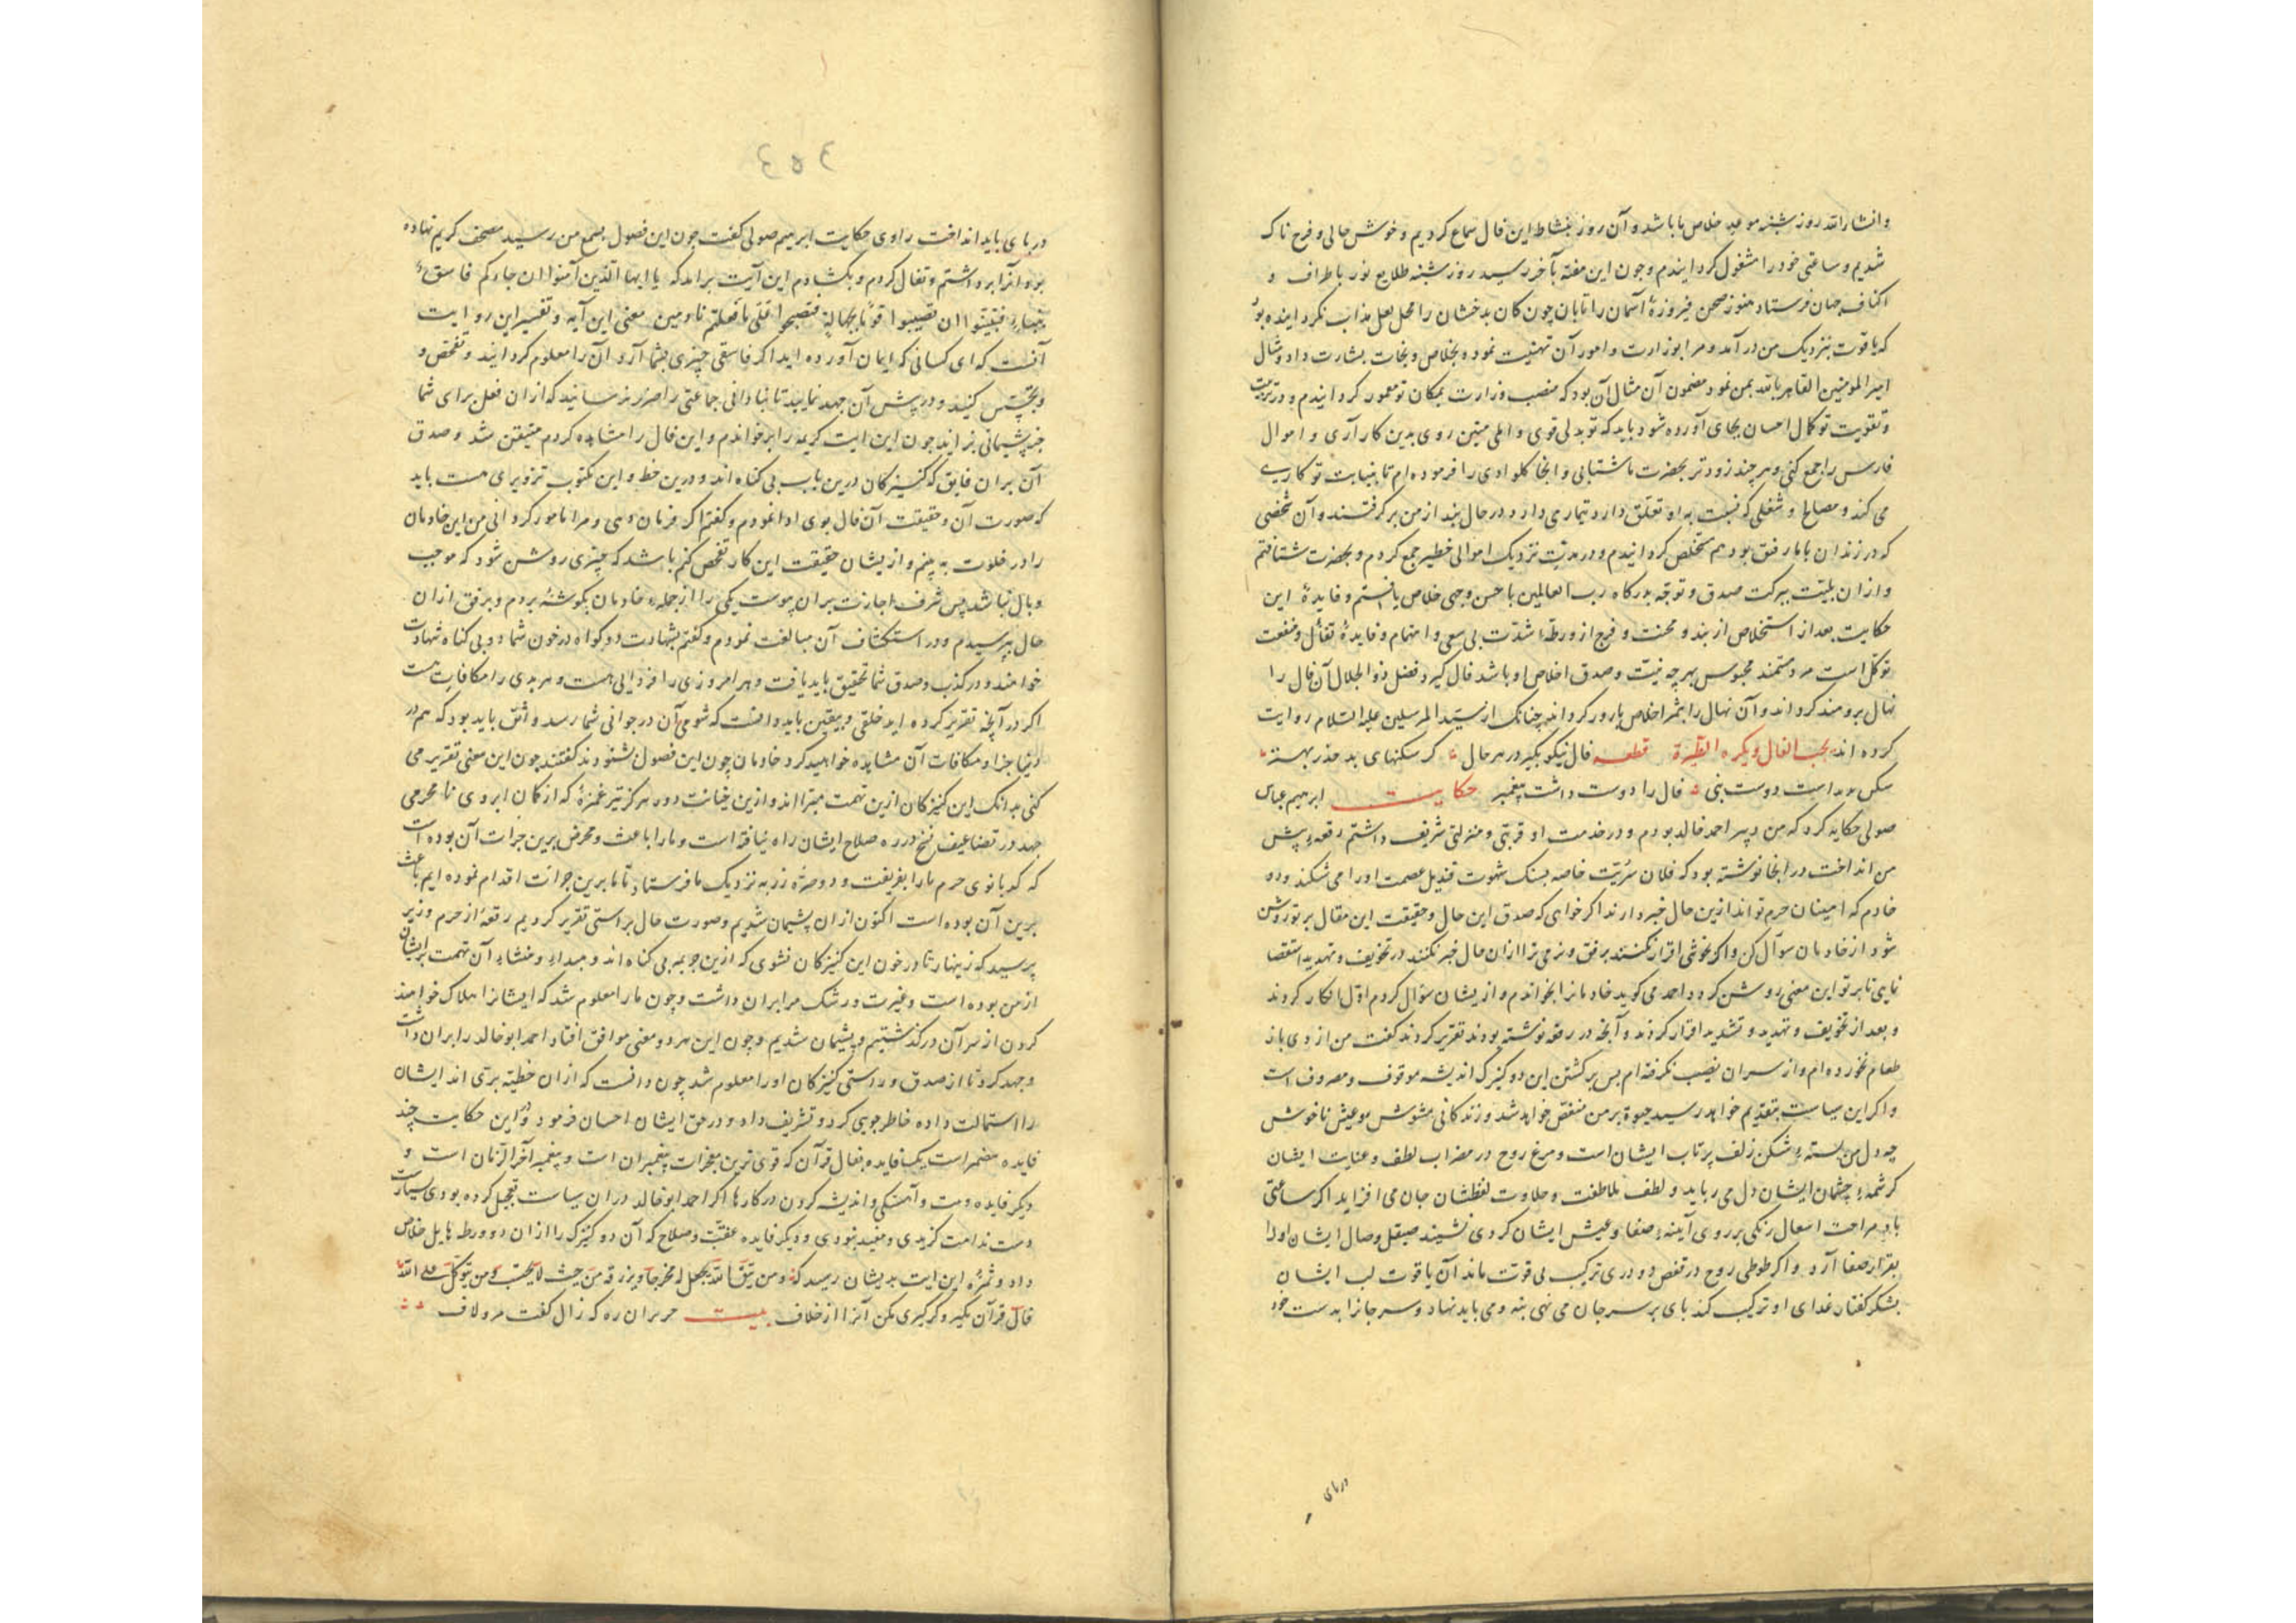 وانشاءالله روز شنبه موعد خلاص ما باشد و آن روز بنشاط این فال سماع کردیم و خوش حالی و فرح ناک
شدیم و ساعتی خود را مشغول کردانیدم و چون این هفته بآخر رسید روز شنبه طلایع نور باطراف و
اکناف جهان فرستاد هنوز صحن فیروزهٔ آسمان را تابان چون کان بدخشان را محل لعل مذاب نکردانیده بود
که یاقوت بنزدیک من در آمد و مرا بوزارت و امور آن تهنیت نمود و بخلاص و نجات بشارت داد و مثال
امیرالمومنین القاهر بالله بمن نمود مضمون آن مثال آن بود که منصب وزارت بمکان تو معمور کردانیدم و در تربیت
و تقویت تو کمال احسان بجای آورده شود باید که تو بدلی قوی و املی متین روی بدین کار آری و اموال
فارس را جمع کنی و هر چند زودتر بحضرت ما شتابی و اینجا کلوادی را فرموده‌ام تا بنیابت تو کارے
می کند و مصالح و شغلی که نسبت به او تعلق دارد تیمار می دارد و در حال بند از من بر کرفتند و آن شخصی
که در زندان با ما رفق بود هم مخلص کردانیدم و در مدت نزدیک اموالی خطیر جمع کردم و بحضرت شتافتم
و ازان بلیت ببرکت صدق و توجه بدرکاه رب العالمین باحسن وجهی خلاص یافتم و فایدهٔ این
حکایت بعد از استخلاص از بند و محنت و فرج از ورطهٔ شدت بی سعی و اهتمام و فایدهٔ تفأل و منفعت
توکل است مرد مستمند محبوس بهر چه نیت و صدق اخلاص او باشد فال کیرد فضل ذوالجلال آن فال را
نهال برومند کرداند و آن نهال را بثمر اخلاص بارور کرداند چنانک از سید المرسلین علیه السلام روایت
کرده اند یحب الفال و یکره الطیرة قطعه فال نیکو بکیر در هر حال کر سکنهای بد حذر بهتر
سکن است دوست بنی فال را دوست داشت پیغمبر حکایت ابرهیم عباس
صولی حکایه کرد که من دبیر احمد خالد بودم و در خدمت او قربتی و منزلتی شریف داشتم رقعهٔ پیش
من انداخت در انجا نوشته بود که فلان سریت خاصه بسنک شهوت قندیل عصمت او را می شکند و دو
خادم که امینان حرم تواند ازین حال خبر دارند اکر خواهی که صدق این حال و حقیقت این مقال بر تو روشن
شود از خادمان سوال کن و اکر بخوشی اقرار نکنند برفق و نرمی ترا ازان حال خبر نکنند در تخویف و تهدید استقصا
نمایی تا بر تو این معنی روشن کردد احمد می کوید خادمانرا بخواندم و از یشان سؤال کردم اول انکار کردند
و بعد از تخویف و تهدید و تشدید اقرار کردند و آنچه در رقعه نوشته بودند تقریر کردند کفت من از دی باز
طعام نخورده‌ام و از سر ان نصیب نکرفته‌ام بس بر کشتن این دو کنیزک اندیشه موقوف و مصروف است
و اکر این سیاست بتقدیم خواهد رسید حیوة بر من منغص خواهد شد و زندکانی مشوش و عیش ناخوش
چه دل من بستهٔ شکن زلف پرتاب ایشان است و مرغ روح در مضراب لطف و عنایت ایشان
کرشمهٔ چشمان ایشان دل می رباید و لطف ملاطفت و حلاوت لفظشان جان می افزاید اکر ساعتی
باد مزاحمت رنکی بر روی آینهٔ صفا و عیش ایشان کردی نشیند صیقل وصال ایشان او را
بقرار صفا آرد و اکر طوطی روح در قفص دودری ترکیب بی قوت ماند آن یاقوت لب ایشان
بشکر کفتار غذای او ترکیب کند بای بر سر جان می نهی بنه و می باید نهاد و سر جانرا بدست خود
درپای
در پای باید انداخت راوی حکایت ابرهیم صولی کفت چون این فصول بسمع من رسید مصحف کریم نهاده
بود آنرا برداشتم و تفال کردم و بکشادم این آیت برآمد که یا ایها الذین آمنوا ان جاءکم فاسق
بنباء فتبینوا ان تصیبوا قوما بجهالة فتصبحوا علی ما فعلتم نادمین معنی این آیه و تفسیر این روایت
آنست که ای کسانی که ایمان آورده اید اکر فاسقی چیزی بشما آرد آن را معلوم کردانید و تفحص و
و تجسس کنید و در پیش آن جهد نمایید تا بنادانی جماعتی را ضرر نرسانید که از ان فعل برای شما
جز پشیمانی نزاید چون این ایت کریمه را بر خواندم و این فال را مشاهده کردم متیقن شد و صدق
آن بران فایق که کنیزکان درین باب بی کناه اند و درین خط و این مکتوب تزویری هست باید
که صورت آن و حقیقت آن فال بوی ادا نمودم و کفتم اکر فرمان دهی و مرا مامور کردانی من این خادمان
را در خلوت به بینم و از یشان حقیقت این کار تفحص کنم باشد که چیزی روشن شود که موجب
وبال نباشد پس شرف اجازت بران پیوست یکی را از جمله خادمان بکوشهٔ بردم و برفق ازان
حال بپرسیدم و در استکشاف آن مبالغت نمودم و کفتم بشهادت دو کواه در خون شما دو بی کناه شهادت
خواهند و در کذب و صدق شما تحقیق باید یافت و هر امروزی را فردایی هست و هر بدی را مکافات هست
اکر در آنچه تقریر کرده اید خلقی و بیقین باید دانست که شومی آن در جوانی شما رسد واثق باید بود که هم در
دنیا جزا و مکافات آن مشاهده خواهید کرد خادمان چون این فصول شنودند کفتند چون این معنی تقریر می
کنی بدانک این کنیزکان ازین تهمت مبرا اند و ازین خیانت دور هرکز تیر غمزهٔ که از کمان ابروی نامحرمی
جهد در تضاعیف نخ درره صلاح ایشان راه نیافته است و ما را باعث و محرض برین جرات آن بوده است
که کدبانوی حرم ما را بفریفت و دو صرهٔ زر به نزدیک ما فرستاد تا ما برین جرأت اقدام نموده ایم باعث
برین آن بوده است اکنون ازان پشیمان شدیم و صورت حال براستی تقریر کردیم رقعهٔ از حرم وزیر
پرسید که زینهار تا در خون این کنیزکان نشوی که ازین جریمه بی کناه اند و مبداء و منشاء آن تهمت بر ایشان
از من بوده است و غیرت و رشک مرا بران داشت و چون ما را معلوم شد که ایشانرا هلاک خواهند
کردن از سر آن در کذشتیم و پشیمان شدیم و چون این هر دو معنی موافق افتاد احمد ابو خالد را بران داشت
و جهد کرد تا از صدق و راستی کنیزکان او را معلوم شد چون دانست که ازان خطیه بری اند ایشان
را استمالت داده خاطر جویی کرد و تشریف داد و در حق ایشان احسان فرمود و در این حکایت چند
فایده مضمر است یک فایده بفال قرآن که قوی ترین معجزات پیغمبران است و پیغمبر آخر الزمان است و
دیکر فایده و آهستکی و اندیشه کردن در کارها اکر احمد ابو خالد در ان سیاست تعجیل کرده بودی بسیار
دست ندامت کزیدی و مفید نبودی و دیکر فایده عفت و صلاح که آن دو کنیزک را ازان دو ورطه هایل خلاص
داد و ثمرهٔ این ایت بدیشان رسید که و من یتق الله یجعل له مخرجا و یرزقه من حیث لا یحتسب و من یتوکل علی الله
فال قرآن بکیر و کر کیری مکن آنرا از خلاف بیت مر بران ره که زال کفت مرو لاف